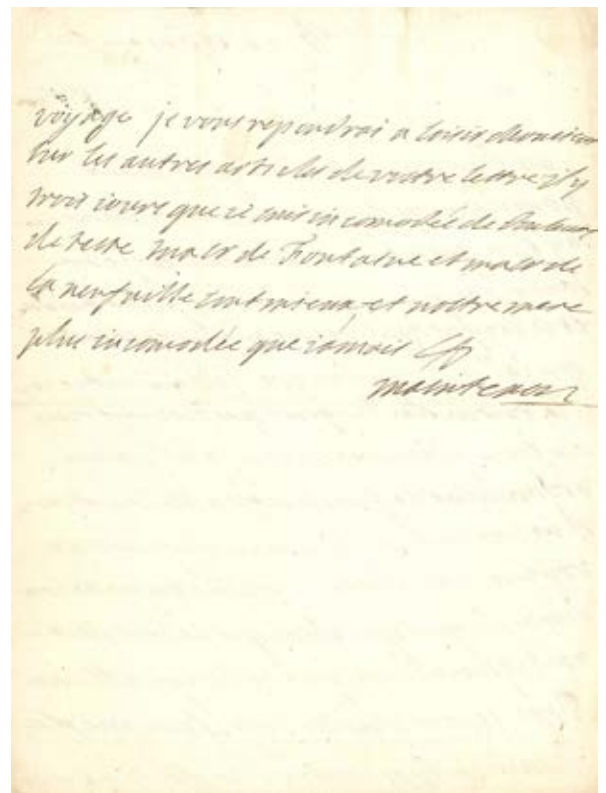 voyage je vous repondrai a loisir
sur les autres articles de vostre lettre il y
trois iours que ie suis incomodée de
de teste mad.e de Fontaine et mad.e de
la neufuille sont mieux et nostre mere
plus incomodée que iamais
maintenon